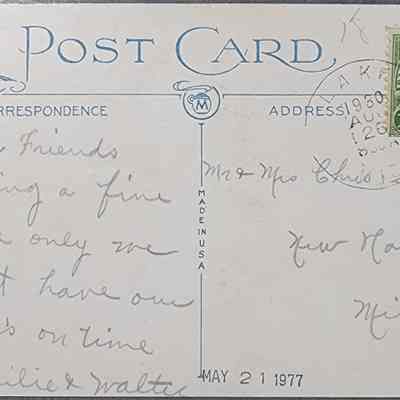 POST CARD
RRESPONDENCE
M
ADDRESS
LAKE
1930
AU
26
MADE IN U.S.A
Friends
ing a fine
only we
t have our
's on time
ilie & Walter
Mr & Mrs Chris
New Ha
Mi
MAY 21 1977